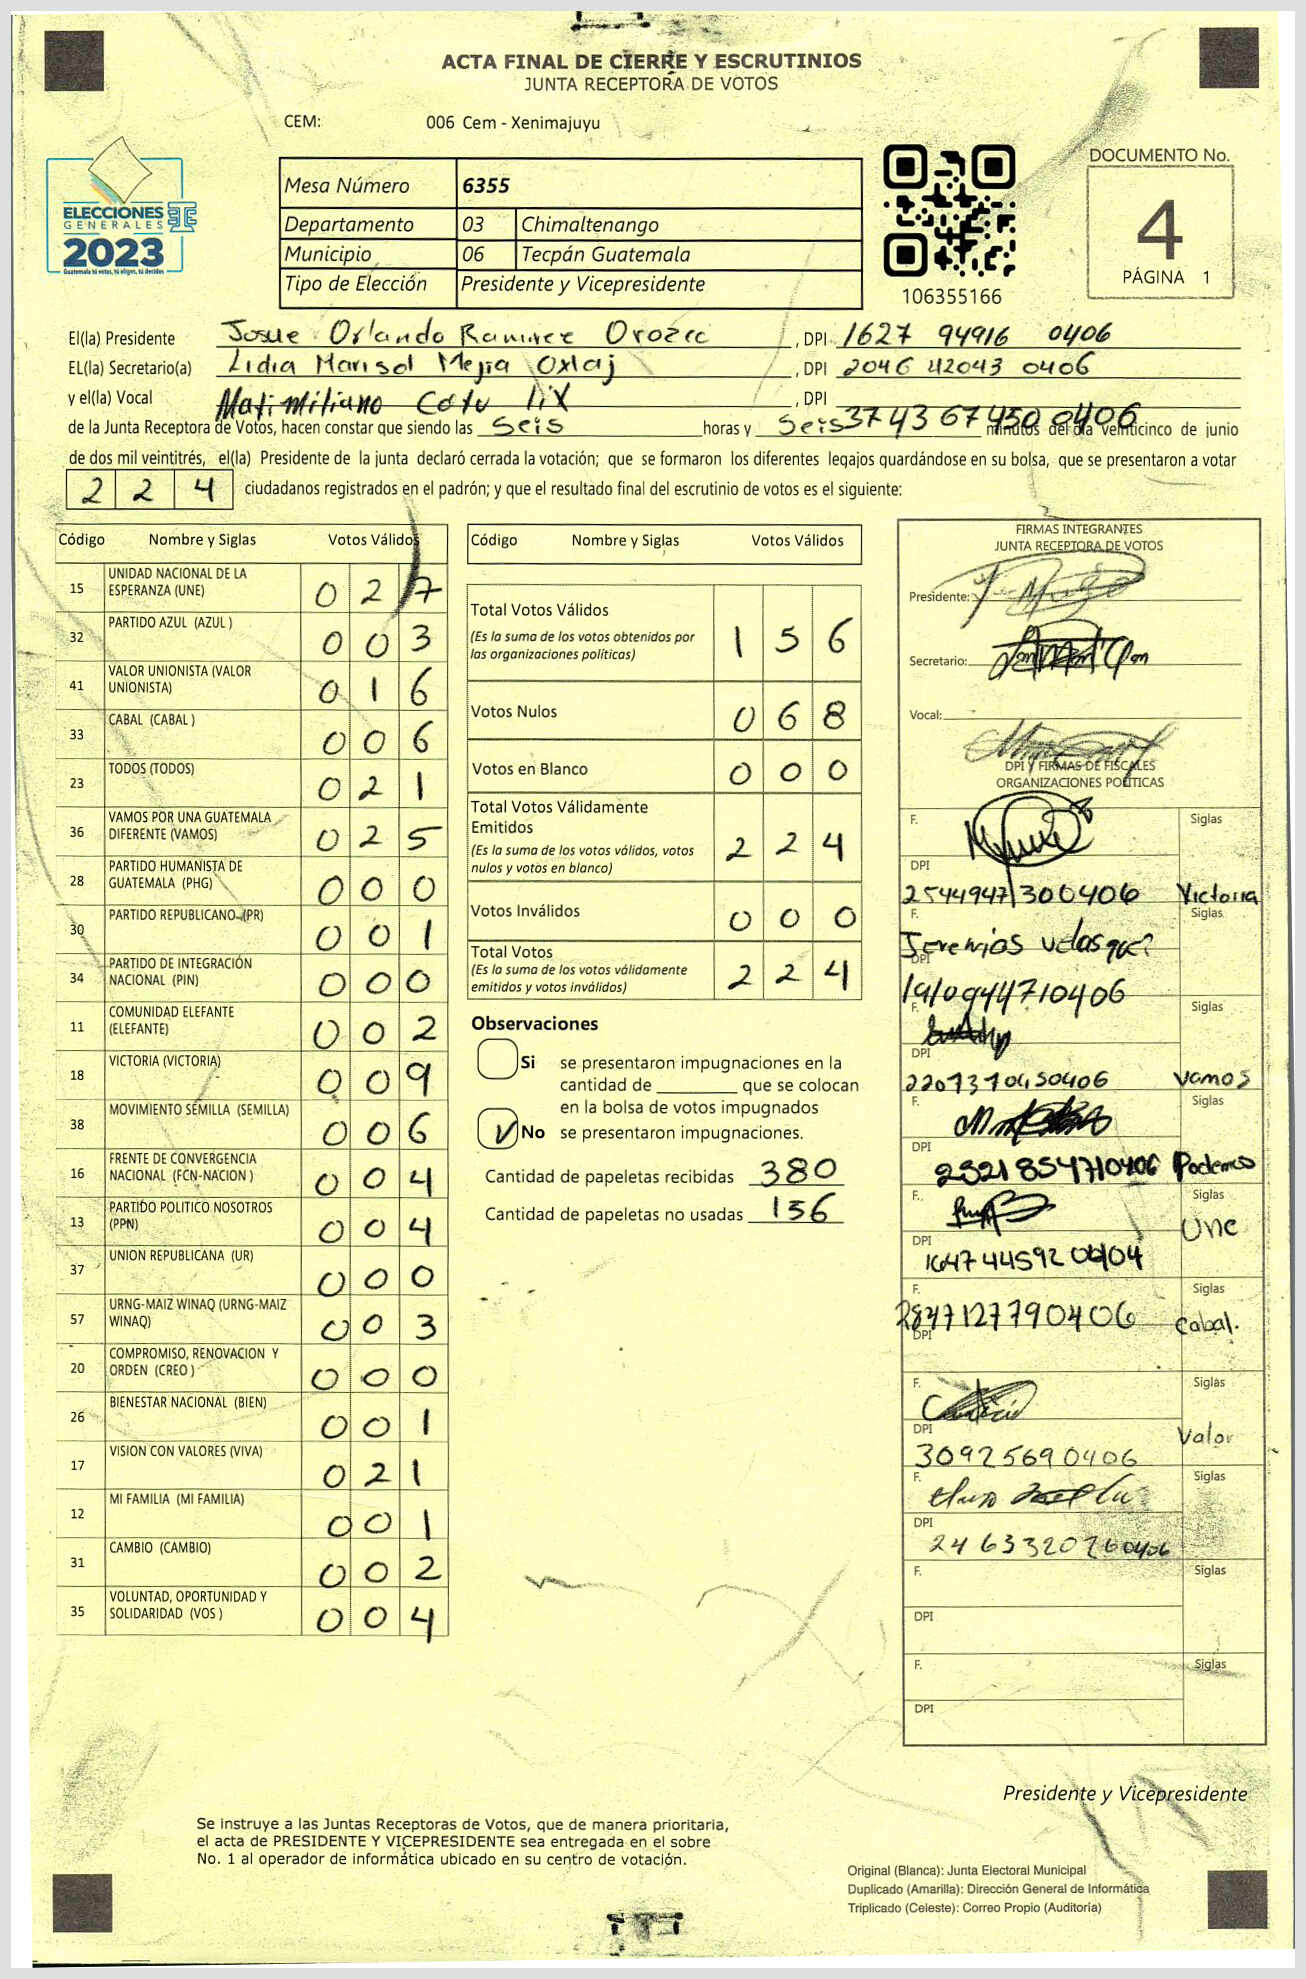 ACTA FINAL DE CIERRE Y ESCRUTINIOS
JUNTA RECEPTORA DE VOTOS
CEM: 006 Cem - Xenimajuyu
ELECCIONES
GENERALES
2023
Guatemala tú votas, tú eliges, tú decides
Mesa Número 6355
Departamento 03 Chimaltenango
Municipio 06 Tecpán Guatemala
Tipo de Elección Presidente y Vicepresidente
106355166
DOCUMENTO No.
4
PÁGINA 1
El(la) Presidente Josue Orlando Ramirez Orozco, DPI 1627 94916 0406
EL(la) Secretario(a) Lidia Marisol Mejia Oxlaj, DPI 2046 42043 0406
y el(la) Vocal Cotu, DPI
37436 7450 0406
de la Junta Receptora de Votos, hacen constar que siendo las seis horas y seis minutos del día veinticinco de junio
de dos mil veintitrés, el(la) Presidente de la junta declaró cerrada la votación; que se formaron los diferentes legajos quardándose en su bolsa, que se presentaron a votar
224 ciudadanos registrados en el padrón; y que el resultado final del escrutinio de votos es el siguiente:
Código Nombre y Siglas Votos Válidos
15 UNIDAD NACIONAL DE LA ESPERANZA (UNE) 027
32 PARTIDO AZUL (AZUL ) 003
41 VALOR UNIONISTA (VALOR UNIONISTA) 016
33 CABAL (CABAL ) 006
23 TODOS (TODOS) 021
36 VAMOS POR UNA GUATEMALA DIFERENTE (VAMOS) 025
28 PARTIDO HUMANISTA DE GUATEMALA (PHG) 000
30 PARTIDO REPUBLICANO (PR) 001
34 PARTIDO DE INTEGRACIÓN NACIONAL (PIN) 000
11 COMUNIDAD ELEFANTE (ELEFANTE) 002
18 VICTORIA (VICTORIA) 009
38 MOVIMIENTO SEMILLA (SEMILLA) 006
16 FRENTE DE CONVERGENCIA NACIONAL (FCN-NACION ) 004
13 PARTIDO POLITICO NOSOTROS (PPN) 004
37 UNION REPUBLICANA (UR) 000
57 URNG-MAIZ WINAQ (URNG-MAIZ WINAQ) 003
20 COMPROMISO, RENOVACION Y ORDEN (CREO ) 000
26 BIENESTAR NACIONAL (BIEN) 001
17 VISION CON VALORES (VIVA) 021
12 MI FAMILIA (MI FAMILIA) 001
31 CAMBIO (CAMBIO) 002
35 VOLUNTAD, OPORTUNIDAD Y SOLIDARIDAD (VOS ) 004
Código Nombre y Siglas Votos Válidos
Total Votos Válidos 156
(Es la suma de los votos obtenidos por
las organizaciones políticas)
Votos Nulos 068
Votos en Blanco 000
Total Votos Válidamente
Emitidos 224
(Es la suma de los votos válidos, votos
nulos y votos en blanco)
Votos Inválidos 000
Total Votos 224
(Es la suma de los votos válidamente
emitidos y votos inválidos)
Observaciones
Si se presentaron impugnaciones en la
cantidad de ________ que se colocan
en la bolsa de votos impugnados
No se presentaron impugnaciones.
Cantidad de papeletas recibidas 380
Cantidad de papeletas no usadas 156
FIRMAS INTEGRANTES
JUNTA RECEPTORA DE VOTOS
Presidente:
Secretario:
Vocal:
DPI Y FIRMAS DE FISCALES
ORGANIZACIONES POLÍTICAS
F. Siglas
DPI
2544947130406 Victoria
F. Siglas
Jeremias Velasquez
DPI
1910944710406
F. Siglas
DPI
2207370450406 Vamos
F. Siglas
DPI
2321854710406 Podemos
F. Siglas
Une
DPI
1647445920404
F. Siglas
2847127790406 Cabal.
DPI
F. Siglas
DPI Valor
30925690406
F. Siglas
DPI
2463320260406
F. Siglas
DPI
F. Siglas
DPI
Presidente y Vicepresidente
Se instruye a las Juntas Receptoras de Votos, que de manera prioritaria,
el acta de PRESIDENTE Y VICEPRESIDENTE sea entregada en el sobre
No. 1 al operador de informática ubicado en su centro de votación.
Original (Blanca): Junta Electoral Municipal
Duplicado (Amarilla): Dirección General de Informática
Triplicado (Celeste): Correo Propio (Auditoría)